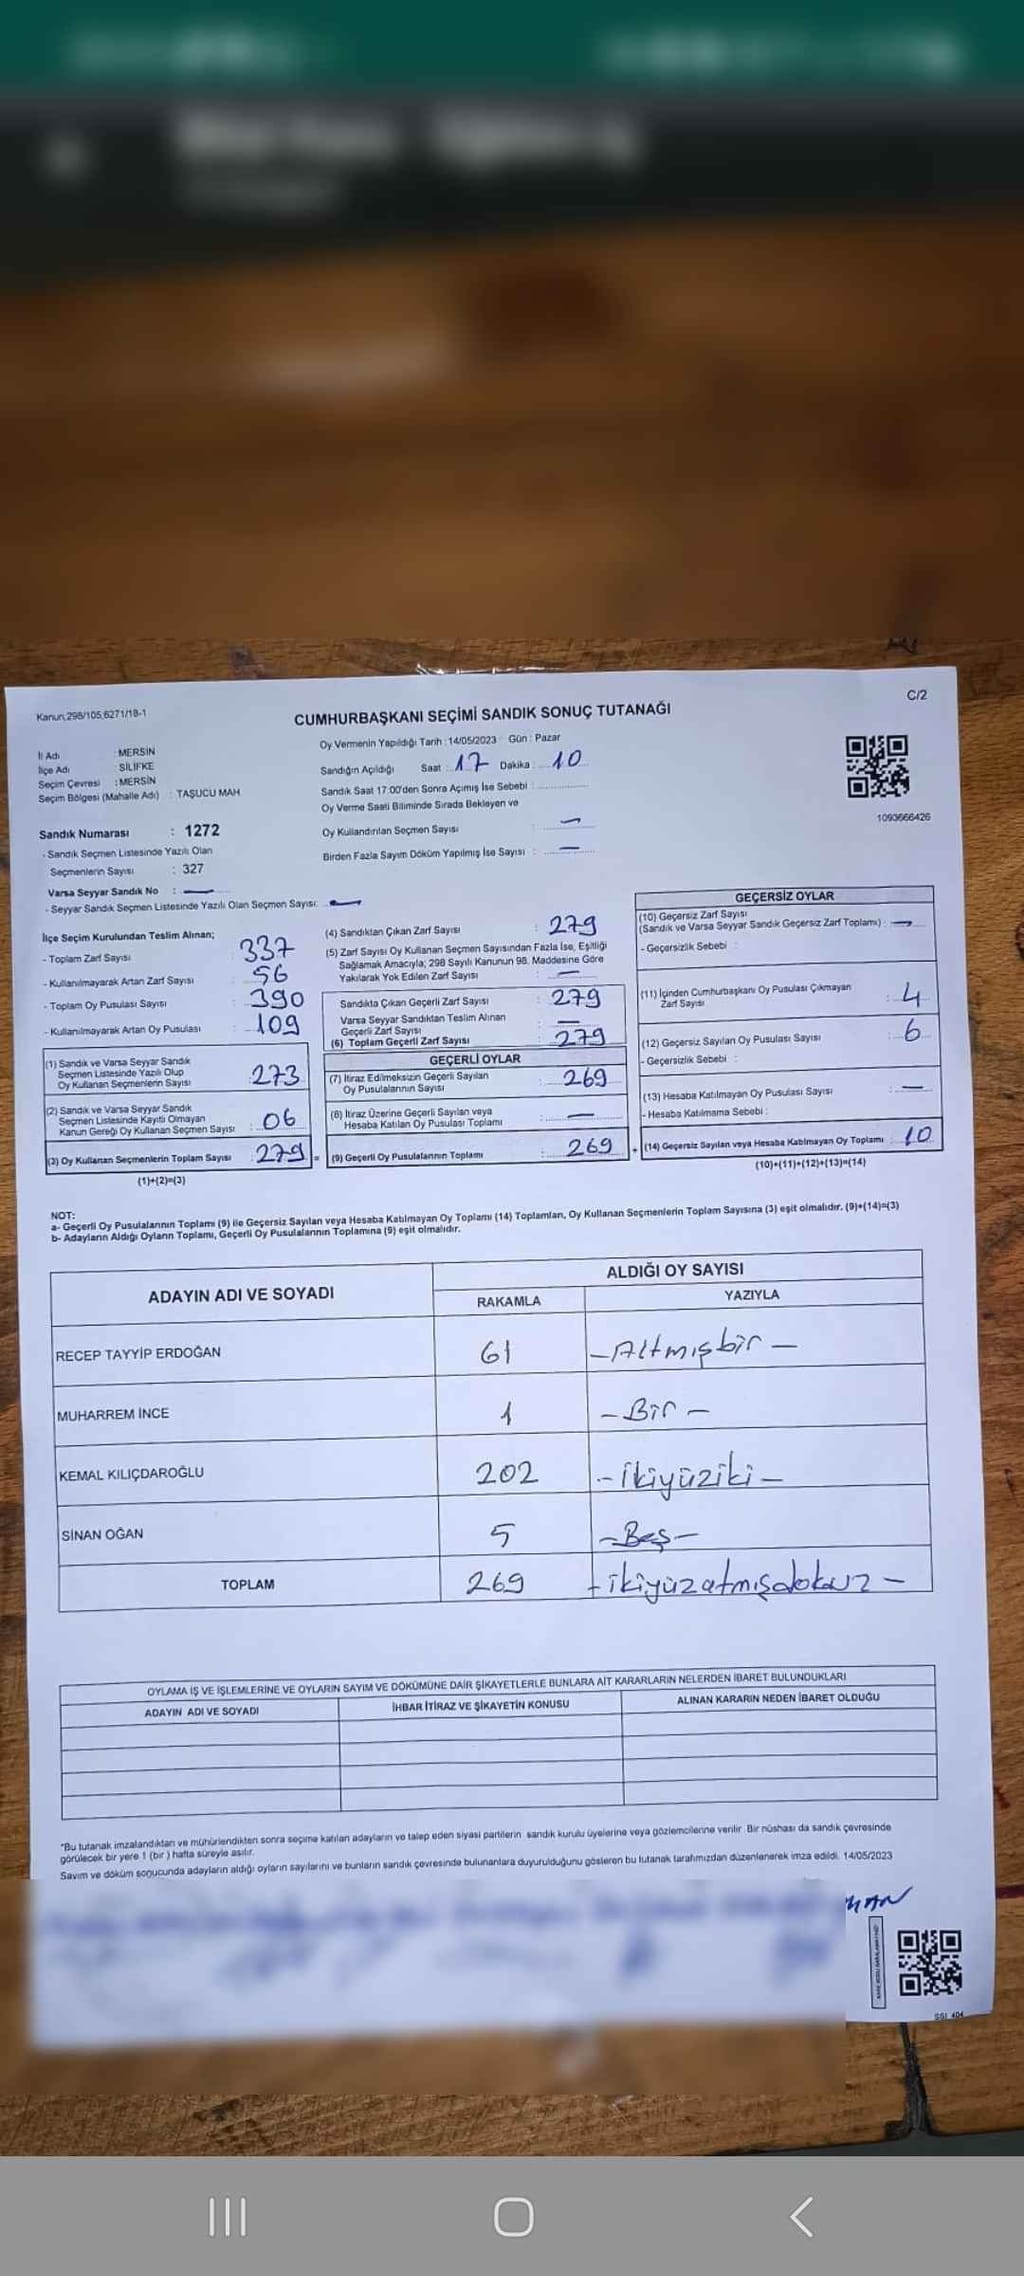 Kanun:298/105,6271/18-1
C/2
CUMHURBAŞKANI SEÇİMİ SANDIK SONUÇ TUTANAĞI
İl Adı : MERSİN
İlçe Adı : SİLİFKE
Seçim Çevresi : MERSİN
Seçim Bölgesi (Mahalle Adı) : TAŞUCU MAH
Oy Vermenin Yapıldığı Tarih : 14/05/2023 Gün : Pazar
Sandığın Açıldığı Saat : 17 Dakika : 10
Sandık Saat 17:00'den Sonra Açımış İse Sebebi :
Oy Verme Saati Bitiminde Sırada Bekleyen ve
Oy Kullandırılan Seçmen Sayısı : —
Birden Fazla Sayım Döküm Yapılmış İse Sayısı : —
1093666426
Sandık Numarası : 1272
- Sandık Seçmen Listesinde Yazılı Olan
Seçmenlerin Sayısı : 327
Varsa Seyyar Sandık No : —
- Seyyar Sandık Seçmen Listesinde Yazılı Olan Seçmen Sayısı: —
İlçe Seçim Kurulundan Teslim Alınan;
- Toplam Zarf Sayısı : 337
- Kullanılmayarak Artan Zarf Sayısı : 56
- Toplam Oy Pusulası Sayısı : 390
- Kullanılmayarak Artan Oy Pusulası : 109
(1) Sandık ve Varsa Seyyar Sandık
Seçmen Listesinde Yazılı Olup
Oy Kullanan Seçmenlerin Sayısı : 273
(2) Sandık ve Varsa Seyyar Sandık
Seçmen Listesinde Kayıtlı Olmayan
Kanun Gereği Oy Kullanan Seçmen Sayısı : 06
(3) Oy Kullanan Seçmenlerin Toplam Sayısı : 279 =
(1)+(2)=(3)
(4) Sandıktan Çıkan Zarf Sayısı : 279
(5) Zarf Sayısı Oy Kullanan Seçmen Sayısından Fazla İse, Eşitliği
Sağlamak Amacıyla; 298 Sayılı Kanunun 98. Maddesine Göre
Yakılarak Yok Edilen Zarf Sayısı : —
Sandıkta Çıkan Geçerli Zarf Sayısı : 279
Varsa Seyyar Sandıktan Teslim Alınan
Geçerli Zarf Sayısı : —
(6) Toplam Geçerli Zarf Sayısı : 279
GEÇERLİ OYLAR
(7) İtiraz Edilmeksizin Geçerli Sayılan
Oy Pusulalarının Sayısı : 269
(8) İtiraz Üzerine Geçerli Sayılan veya
Hesaba Katılan Oy Pusulası Toplamı : —
(9) Geçerli Oy Pusulalarının Toplamı : 269 +
GEÇERSİZ OYLAR
(10) Geçersiz Zarf Sayısı
(Sandık ve Varsa Seyyar Sandık Geçersiz Zarf Toplamı) : —
- Geçersizlik Sebebi :
(11) İçinden Cumhurbaşkanı Oy Pusulası Çıkmayan
Zarf Sayısı : 4
(12) Geçersiz Sayılan Oy Pusulası Sayısı : 6
- Geçersizlik Sebebi :
(13) Hesaba Katılmayan Oy Pusulası Sayısı : —
- Hesaba Katılmama Sebebi :
(14) Geçersiz Sayılan veya Hesaba Katılmayan Oy Toplamı : 10
(10)+(11)+(12)+(13)=(14)
NOT:
a- Geçerli Oy Pusulalarının Toplamı (9) ile Geçersiz Sayılan veya Hesaba Katılmayan Oy Toplamı (14) Toplamları, Oy Kullanan Seçmenlerin Toplam Sayısına (3) eşit olmalıdır. (9)+(14)=(3)
b- Adayların Aldığı Oyların Toplamı, Geçerli Oy Pusulalarının Toplamına (9) eşit olmalıdır.
ADAYIN ADI VE SOYADI
ALDIĞI OY SAYISI
RAKAMLA YAZIYLA
RECEP TAYYİP ERDOĞAN 61 -Altmışbir-
MUHARREM İNCE 1 -Bir-
KEMAL KILIÇDAROĞLU 202 -İkiyüziki-
SİNAN OĞAN 5 -Beş-
TOPLAM 269 -ikiyüzatmışdokuz-
OYLAMA İŞ VE İŞLEMLERİNE VE OYLARIN SAYIM VE DÖKÜMÜNE DAİR ŞİKAYETLERLE BUNLARA AİT KARARLARIN NELERDEN İBARET BULUNDUKLARI
ADAYIN ADI VE SOYADI İHBAR İTİRAZ VE ŞİKAYETİN KONUSU ALINAN KARARIN NEDEN İBARET OLDUĞU
*Bu tutanak imzalandıktan ve mühürlendikten sonra seçime katılan adayların ve talep eden siyasi partilerin sandık kurulu üyelerine veya gözlemcilerine verilir. Bir nüshası da sandık çevresinde
görülecek bir yere 1 (bir) hafta süreyle asılır.
Sayım ve döküm sonucunda adayların aldığı oyların sayılarını ve bunların sandık çevresinde bulunanlara duyurulduğunu gösteren bu tutanak tarafımızdan düzenlenerek imza edildi. 14/05/2023